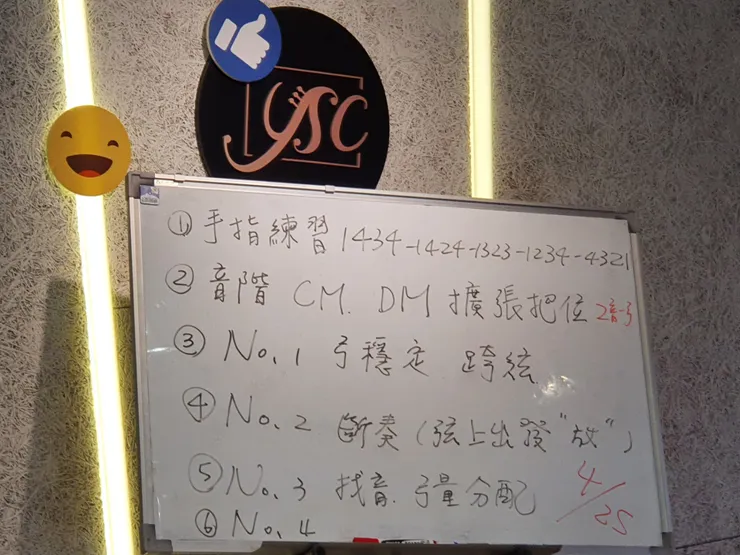 YSC
① 手指練習 1434-1424-1323-1234-4321
② 音階 CM. DM 擴張把位 2音弓
③ No. 1 弓穩定 跨弦
④ No. 2 斷奏 (弦上出發"放")
⑤ No. 3 找音. 弓量分配
4/25
⑥ No. 4